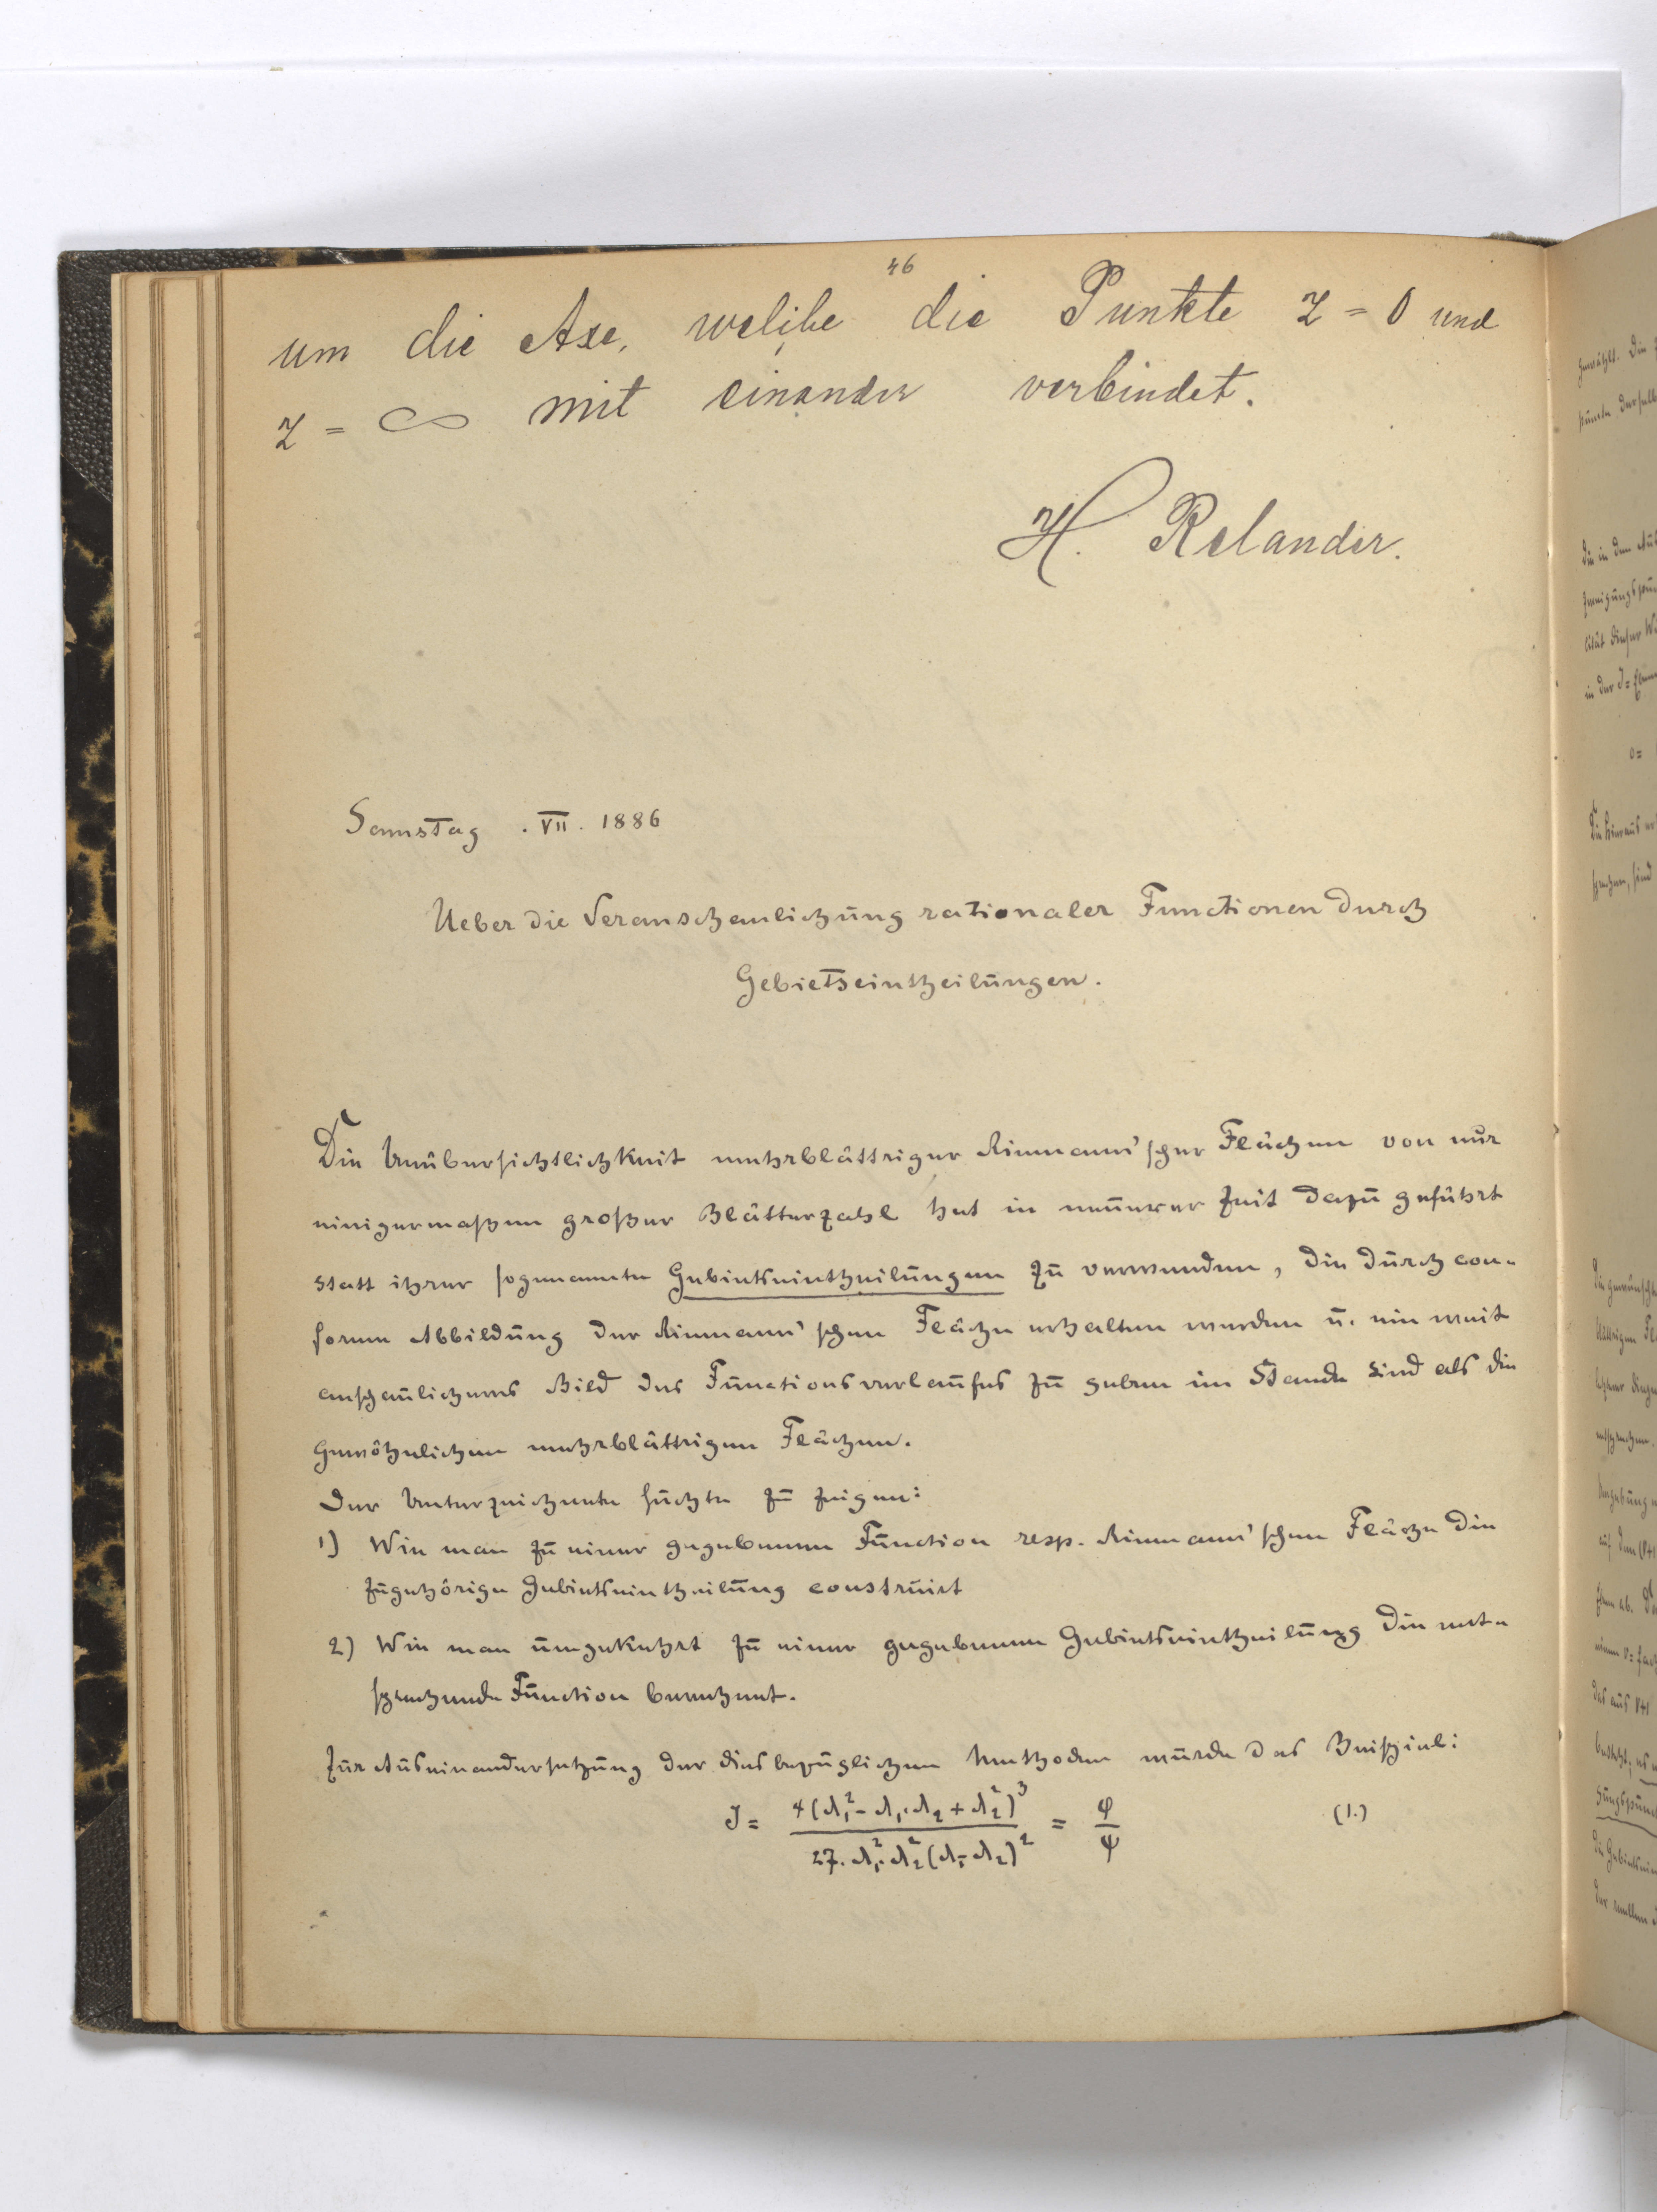 46
um die Axe, welche die Punkte z = 0 und
z = ∞ mit einander verbindet.
H. Relander.
Samstag . VII. 1886
Ueber die Veranschaulichung rationaler Functionen durch
Gebietseintheilungen.
Die Unübersichtlichkeit mehrblättriger Riemann'scher Flächen von nur
einigermaßen großer Blätterzahl hat in neuerer Zeit dazu geführt
statt ihrer sogenannte Gebietseintheilungen zu verwenden, die durch con-
forme Abbildung der Riemann'schen Fläche erhalten werden u. ein weit
anschaulicheres Bild des Functionsverlaufes zu geben im Stande sind als die
gewöhnlichen mehrblättrigen Flächen.
Der Unterzeichnete suchte zu zeigen:
1) Wie man zu einer gegebenen Function resp. Riemann'schen Fläche die
zugehörige Gebietseintheilung construirt
2) Wie man umgekehrt zu einer gegebenen Gebietseintheilung die ent-
sprechende Function berechnet.
Zur Auseinandersetzung der diesbezüglichen Methoden wurde das Beispiel:
J = 4(λ₁² - λ₁.λ₂ + λ₂²)³ / 27.λ₁².λ₂²(λ₁-λ₂)² = φ/ψ (1.)